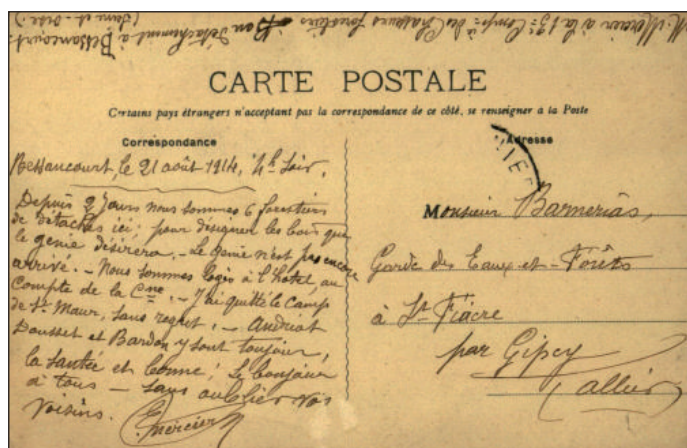 M. Mercier à la 13e Compie des Chasseurs forestiers
en Détachement à Bessancourt.
(Seine et Oise)
CARTE POSTALE
Certains pays étrangers n'acceptant pas la correspondance de ce côté, se renseigner à la Poste
Correspondance
Bessancourt, le 21 août 1914, 4h Soir.
Depuis 2 Jours nous sommes 6 forestiers
de détachés ici; pour désigner les bois que
le génie désirera. - Le génie n'est pas encore
arrivé. - Nous sommes logés à l'hôtel, au
compte de la Cne. - J'ai quitté le camp
de St Maur, sans regret. - Andriat
Dousset et Bardon y sont toujours,
la santée est bonne; Le bonjour
à tous - sans oublier vos
voisins. E. Mercier
Adresse
Monsieur Barnerias,
Garde des Eaux-et-Forêts
à St Fiacre
par Gipcy
(allier)